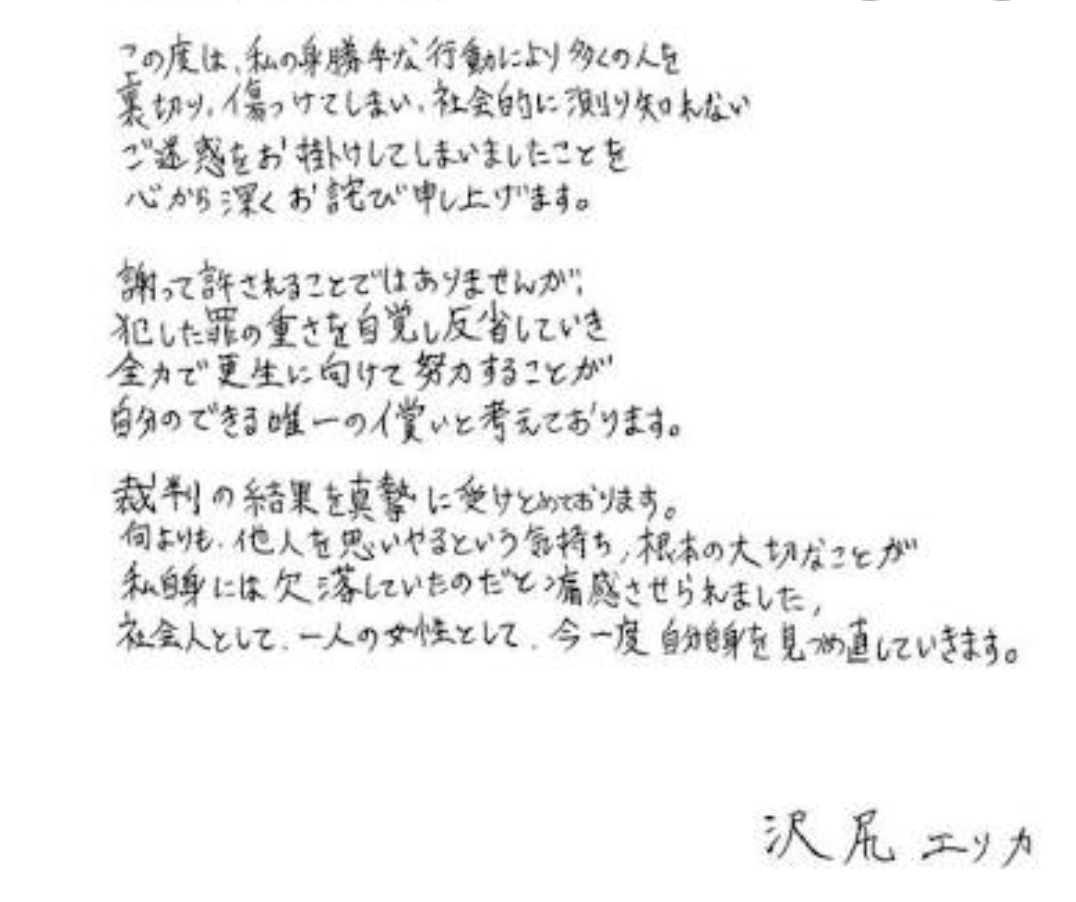 この度は、私の身勝手な行動により多くの人を
裏切り、傷つけてしまい、社会的に測り知れない
ご迷惑をお掛けしてしまいましたことを
心から深くお詫び申し上げます。
謝って許されることではありませんが、
犯した罪の重さを自覚し反省していき
全力で更生に向けて努力することが
自分のできる唯一の償いと考えております。
裁判の結果を真摯に受けとめております。
何よりも、他人を思いやるという気持ち、根本の大切なことが
私自身には欠落していたのだと痛感させられました、
社会人として、一人の女性として、今一度自分自身を見つめ直していきます。
沢尻エリカ